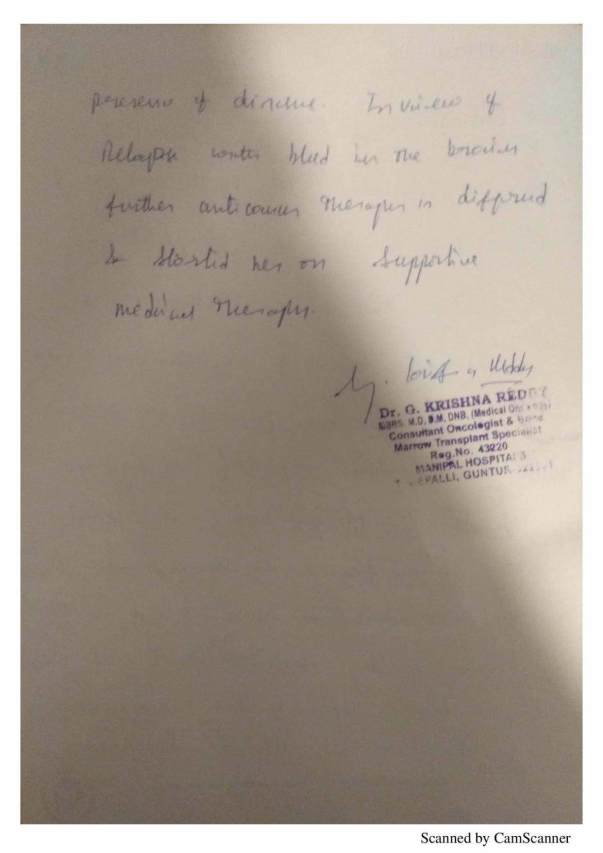 presence of disease. In view of
Relapse with bleed in the brain
further anticancer therapy is differed
& started her on supportive
medical therapy.
Dr. G. KRISHNA REDDY
MBBS, M.D, D.M, DNB, (Medical Oncology)
Consultant Oncologist & Bone
Marrow Transplant Specialist
Reg.No. 43220
MANIPAL HOSPITALS
GUNTUR
Scanned by CamScanner